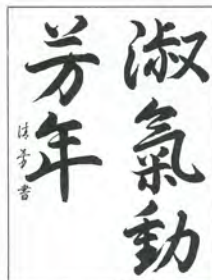 淑氣動
芳年
清芳書